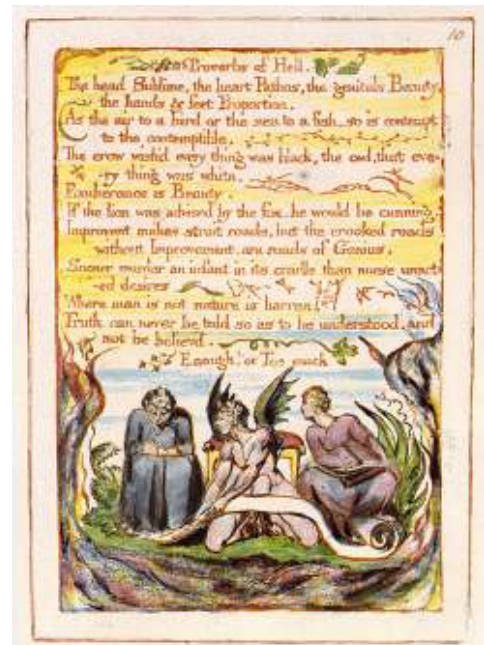 10
Proverbs of Hell.
The head Sublime, the heart Pathos, the genitals Beauty,
the hands & feet Proportion.
As the air to a bird or the sea to a fish, so is contempt
to the contemptible.
The crow wish'd every thing was black, the owl, that eve-
-ry thing was white.
Exuberance is Beauty.
If the lion was advised by the fox, he would be cunning.
Improvement makes strait roads, but the crooked roads
without Improvement, are roads of Genius.
Sooner murder an infant in its cradle than nurse unact-
-ed desires
Where man is not nature is barren.
Truth can never be told so as to be understood, and
not be believ'd.
Enough! or Too much